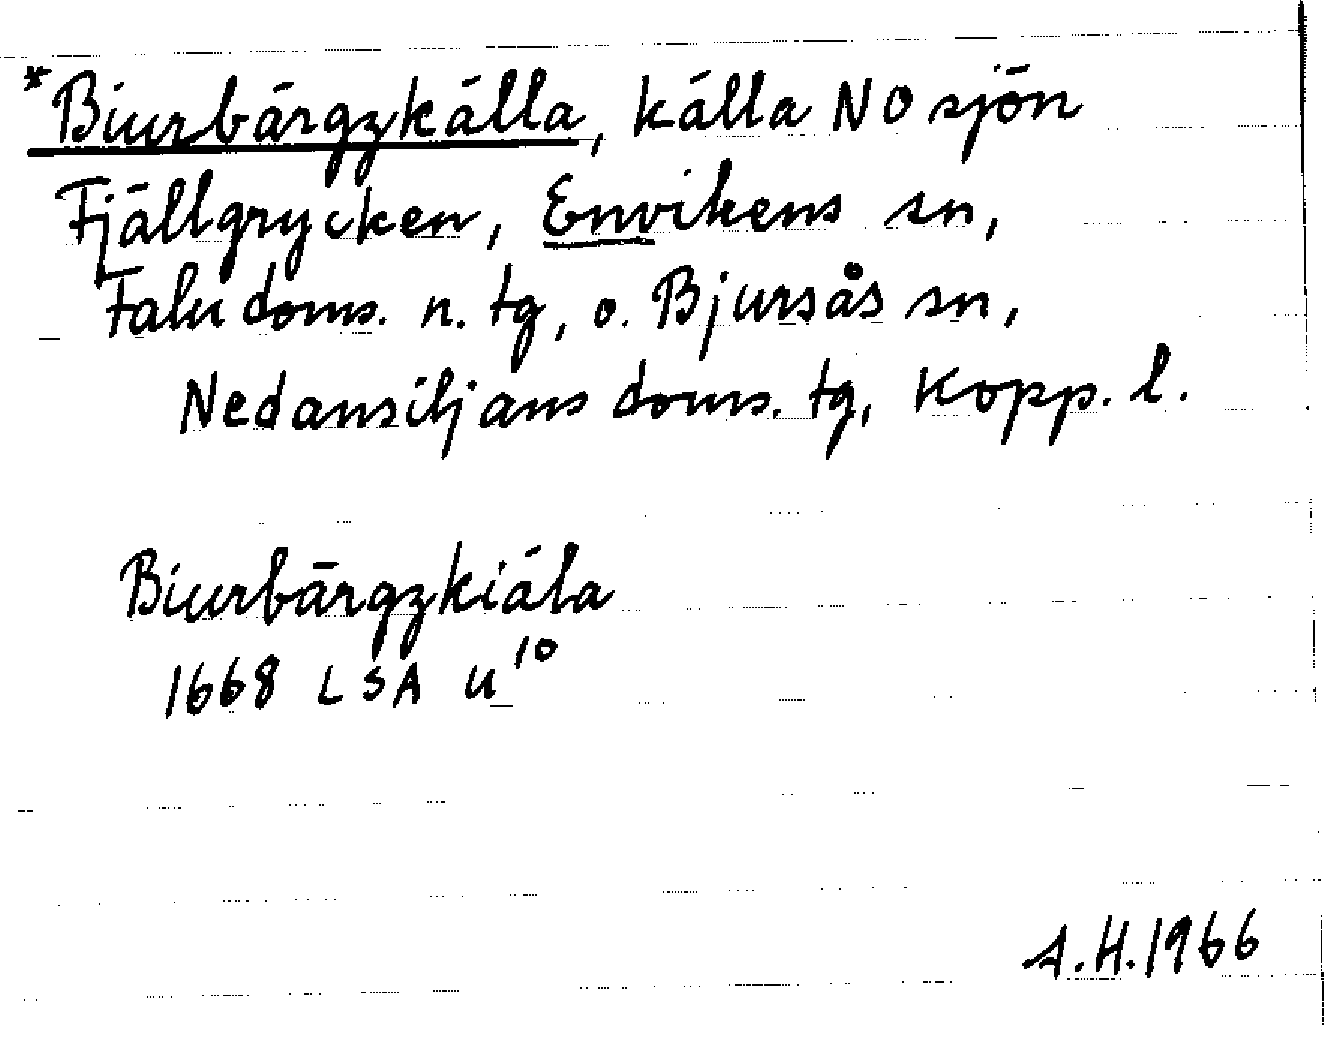 *Biurbärgzkälla, källa NO sjön
Fjällgrycken, Envikens sn,
Falu doms. n. tg, o. Bjursås sn,
Nedansiljans doms. tg, Kopp. l.
Biurbärgzkiäla
1668 LSA U¹⁰
A.H. 1966